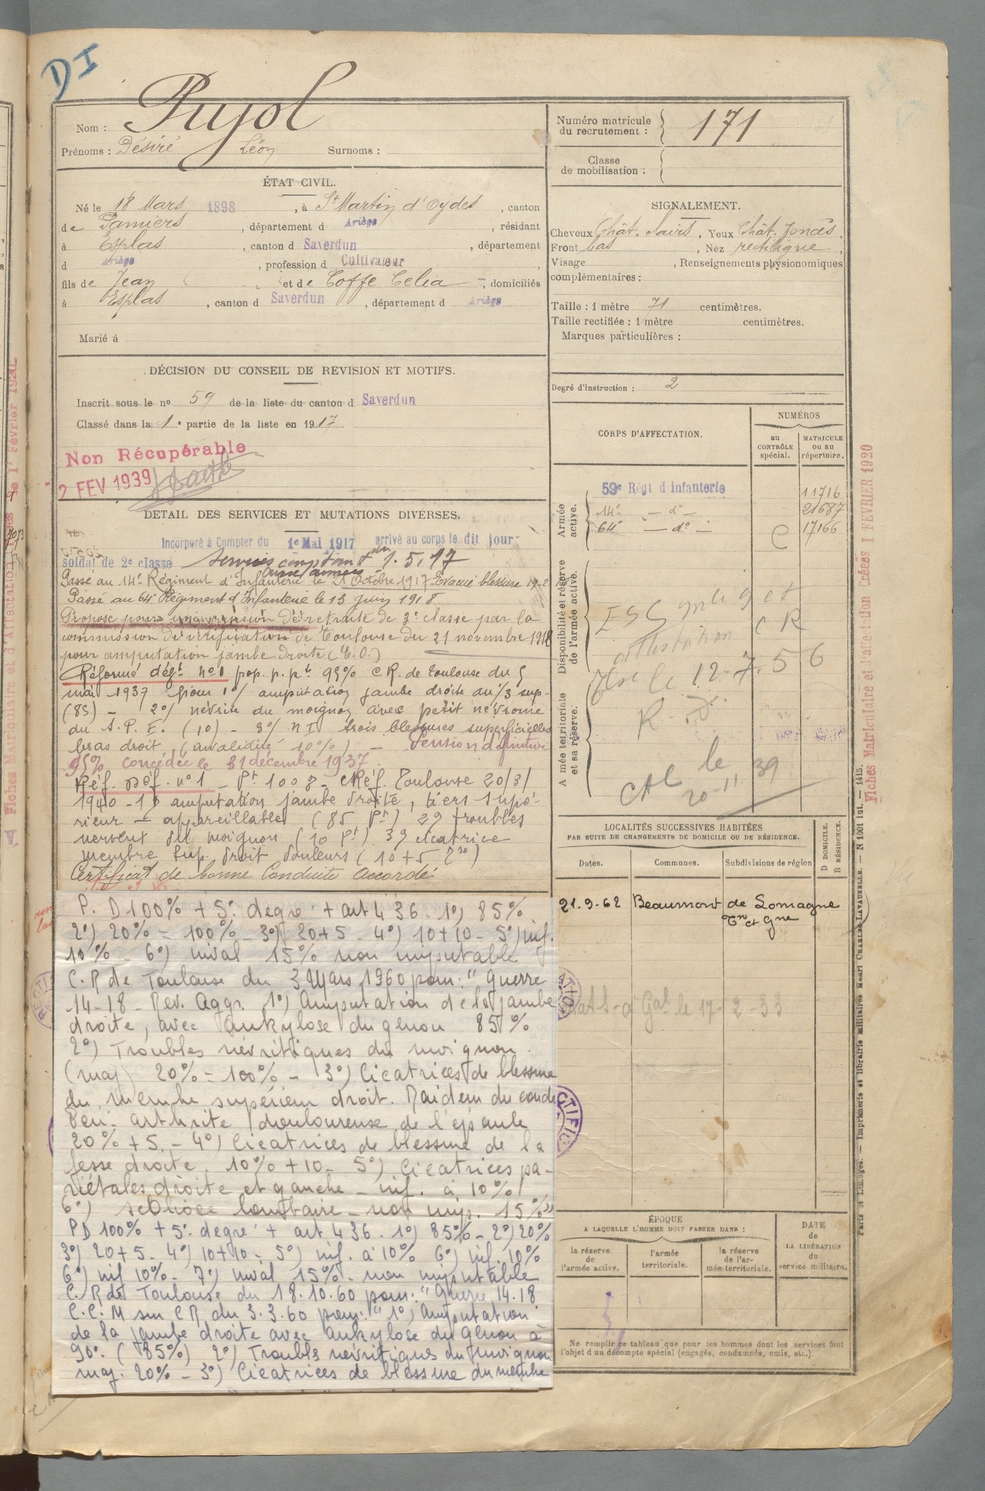 DI
Nom : Pujol
Prénoms : Désiré Léon Surnoms :
Numéro matricule du recrutement : 171
Classe de mobilisation :
ÉTAT CIVIL.
Né le 18 Mars 1898, à St Martin d'Oydes, canton
de Pamiers, département d Ariège, résidant
à Esplas, canton d Saverdun, département
d Ariège, profession d Cultivateur
fils de Jean et de Toffe Celia, domiciliés
à Esplas, canton d Saverdun, département d Ariège
Marié à
SIGNALEMENT.
Cheveux Chât., Yeux Chât. foncés
Front bas, Nez rectiligne
Visage, Renseignements physionomiques
complémentaires :
Taille : 1 mètre 71 centimètres.
Taille rectifiée : 1 mètre centimètres.
Marques particulières :
Degré d'instruction : 2
DÉCISION DU CONSEIL DE REVISION ET MOTIFS.
Inscrit sous le no 59 de la liste du canton d Saverdun
Classé dans la 1e partie de la liste en 1917.
Non Récupérable
2 FEV 1939
DÉTAIL DES SERVICES ET MUTATIONS DIVERSES.
Incorporé à Compter du 1er Mai 1917 arrivé au corps le dit jour
soldat de 2e classe Services comptent du 1.5.17
Passé au 14e Régiment d'Infanterie le 21 Octobre 1917 Evacué blessure
Passé au 64e Régiment d'Infanterie le 13 juin 1918
Proposé pour une pension de retraite de 3e classe par la
commission de vérification de Toulouse du 21 novembre 1918
pour amputation jambe droite
Réformé déft no 1 prop. p. pte 95% C.R. de Toulouse du 5
mai 1937 pour 1°/ amputation jambe droite du 1/3 sup.
(85) - 2°/ névrite du moignon avec petit névrome
du S.P.E. (10) - 3°/ trois blessures superficielles
bras droit, (invalidité 10%) - Pension définitive
95% concédée le 31 décembre 1937.
Réf. Déf. n° 1 Pt 100% CRéf. Toulouse 20/3/
1940 - 1° amputation jambe droite, tiers supé-
rieur - appareillable (85 Pt) 2° troubles
nerveux du moignon (10 Pt) 3° cicatrice
membre sup. droit douleurs (10+5
Certificat de bonne Conduite Accordé
P. D 100% + 5° degré + art 4 36. 1°) 85%
2°) 20% = 100% - 3°) 20+5 - 4°) 10+10 - 5°) inf.
10% - 6°) inval 15% non imputable
C.R de Toulouse du 3 Mars 1960 pour : "Guerre
14-18 Rev. Aggr. 1°) Amputation de la jambe
droite, avec ankylose du genou 85%
2°) Troubles névritiques du moignon.
(maj) 20% = 100% - 3°) Cicatrices de blessure
du membre supérieur droit. Raideur du coude
Péri-arthrite douloureuse de l'épaule
20% + 5. - 4°) Cicatrices de blessure de la
fesse droite. 10% + 10 - 5°) Cicatrices pa-
riétales droite et gauche - inf. à 10%
6°) scoliose lombaire - non imp. 15%"
PD 100% + 5° degré + art 4 36. 1°) 85% - 2°) 20%
3°) 20+5 - 4°) 10+10 - 5°) inf. à 10% 6°) inf. 10%
6°) inf 10% - 7°) inval 15% - non imputable
C. R de Toulouse du 18.10.60 pour : "Guerre 14.18
C.C.M sur CR du 3.3.60 pour : "1°) Amputation
de la jambe droite avec ankylose du genou à
90°. (85%) 2°) Troubles névritiques du moignon
maj. 20% - 3°) Cicatrices de blessure du membre
CORPS D'AFFECTATION.
NUMÉROS
au CONTRÔLE spécial.
MATRICULE ou au répertoire.
Armée active.
59e Régt d'Infanterie 11716
14e - do - 21687
64e - do - C 17166
Disponibilité et réserve de l'armée active.
12-7.56
Armée territoriale et sa réserve.
LOCALITÉS SUCCESSIVES HABITÉES
PAR SUITE DE CHANGEMENTS DE DOMICILE OU DE RÉSIDENCE.
Dates. Communes. Subdivisions de région
D DOMICILE. R RÉSIDENCE.
21.9.62 Beaumont de Lomagne
Tn et Gne
le 17-2-33
ÉPOQUE
A LAQUELLE L'HOMME DOIT PASSER DANS :
la réserve de l'armée active.
l'armée territoriale.
la réserve de l'armée territoriale.
DATE de LA LIBÉRATION du service militaire.
Ne remplir ce tableau que pour les hommes dont les services font
l'objet d'un décompte spécial (engagés, condamnés, omis, etc.).
Fiches Matriculaire et d'affectation Créées 1 FEVRIER 1920
Paris et Limoges. — Imprimerie et librairie militaires Henri CHARLES-LAVAUZELLE.